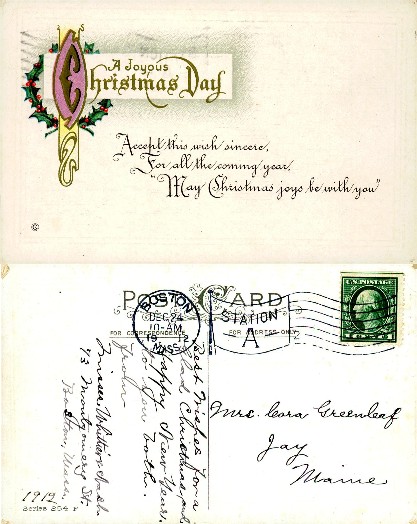 A Joyous
Christmas Day
Accept this wish sincere,
For all the coming year,
"May Christmas joys be with you"
©
POST CARD
FOR CORRESPONDENCE
FOR ADDRESS ONLY
BOSTON
DEC 24
10-AM
1912
MASS.
STATION
A
U.S. POSTAGE
Best Wishes for a
Glad Christmas and
Happy New Year,
to you both.
from
43 Montgomery St.
Boston, Mass.
Mrs. Cora Greenleaf
Jay
Maine
1912
Series 254 F